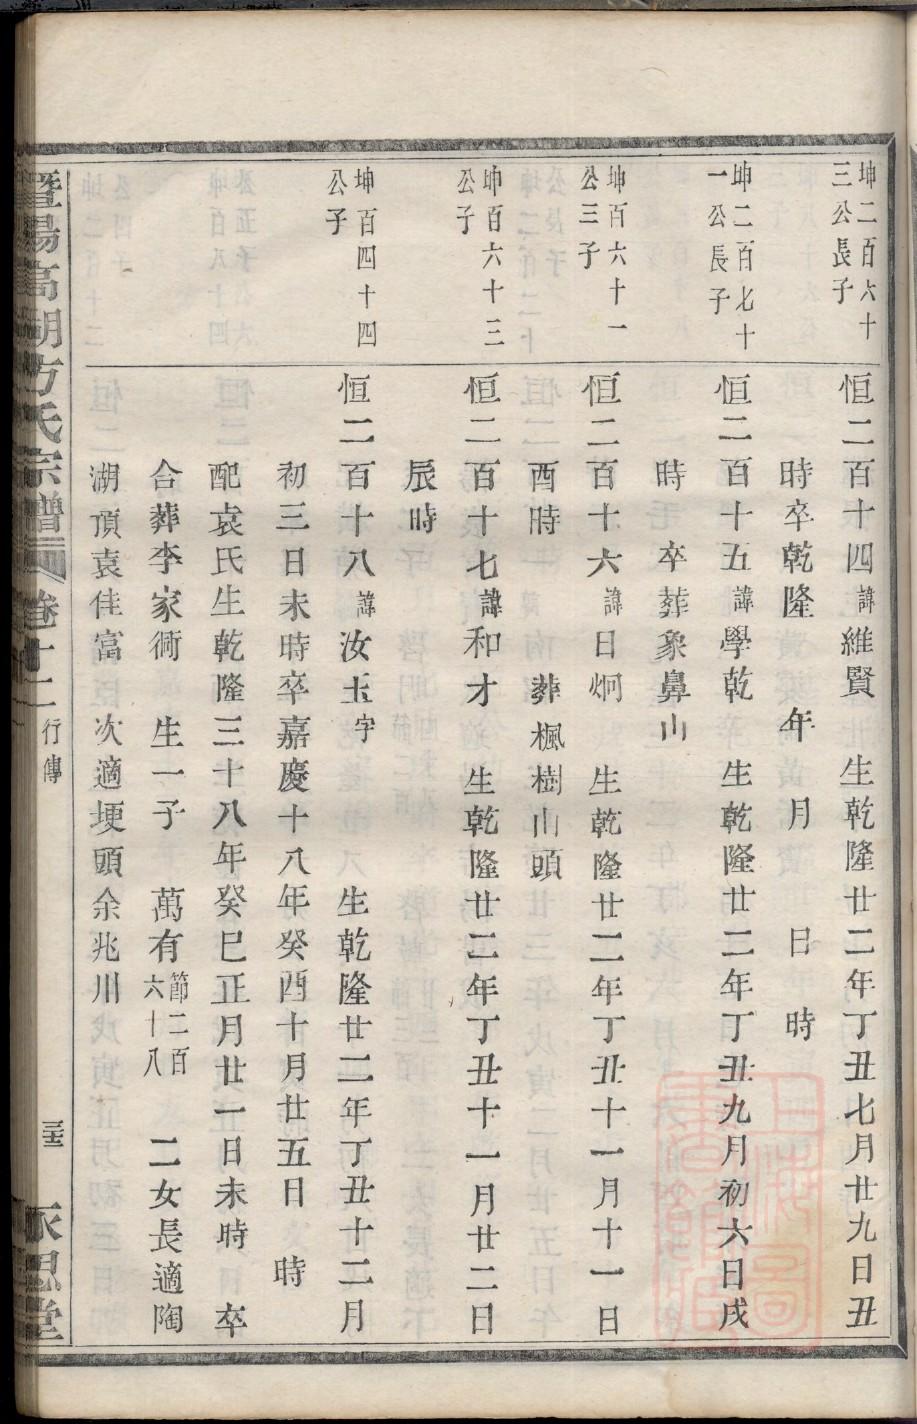 坤二百六十
三公長子
恒二百十四諱維賢　生乾隆廿二年丁丑七月廿九日丑
時卒乾隆　年　月　日　時
坤二百七十
一公長子
恒二百十五諱學乾　生乾隆廿二年丁丑九月初六日戌
時　卒葬象鼻山
坤百六十一
公三子
恒二百十六諱日炯　生乾隆廿二年丁丑十一月十一日
酉時　葬楓樹山頭
坤百六十三
公子
恒二百十七諱和才　生乾隆廿二年丁丑十一月廿二日
辰時
坤百四十四
公子
恒二百十八諱汝玉字　生乾隆廿二年丁丑十二月
初三日未時卒嘉慶十八年癸酉十月廿五日　時
配袁氏生乾隆三十八年癸巳正月廿一日未時　卒
合葬李家衕　生一子　萬有節二百六十八　二女長適陶
湖頂袁佳富　次適埂頭余兆川
暨陽高湖方氏宗譜　卷十一　行傳　三十五　永思堂